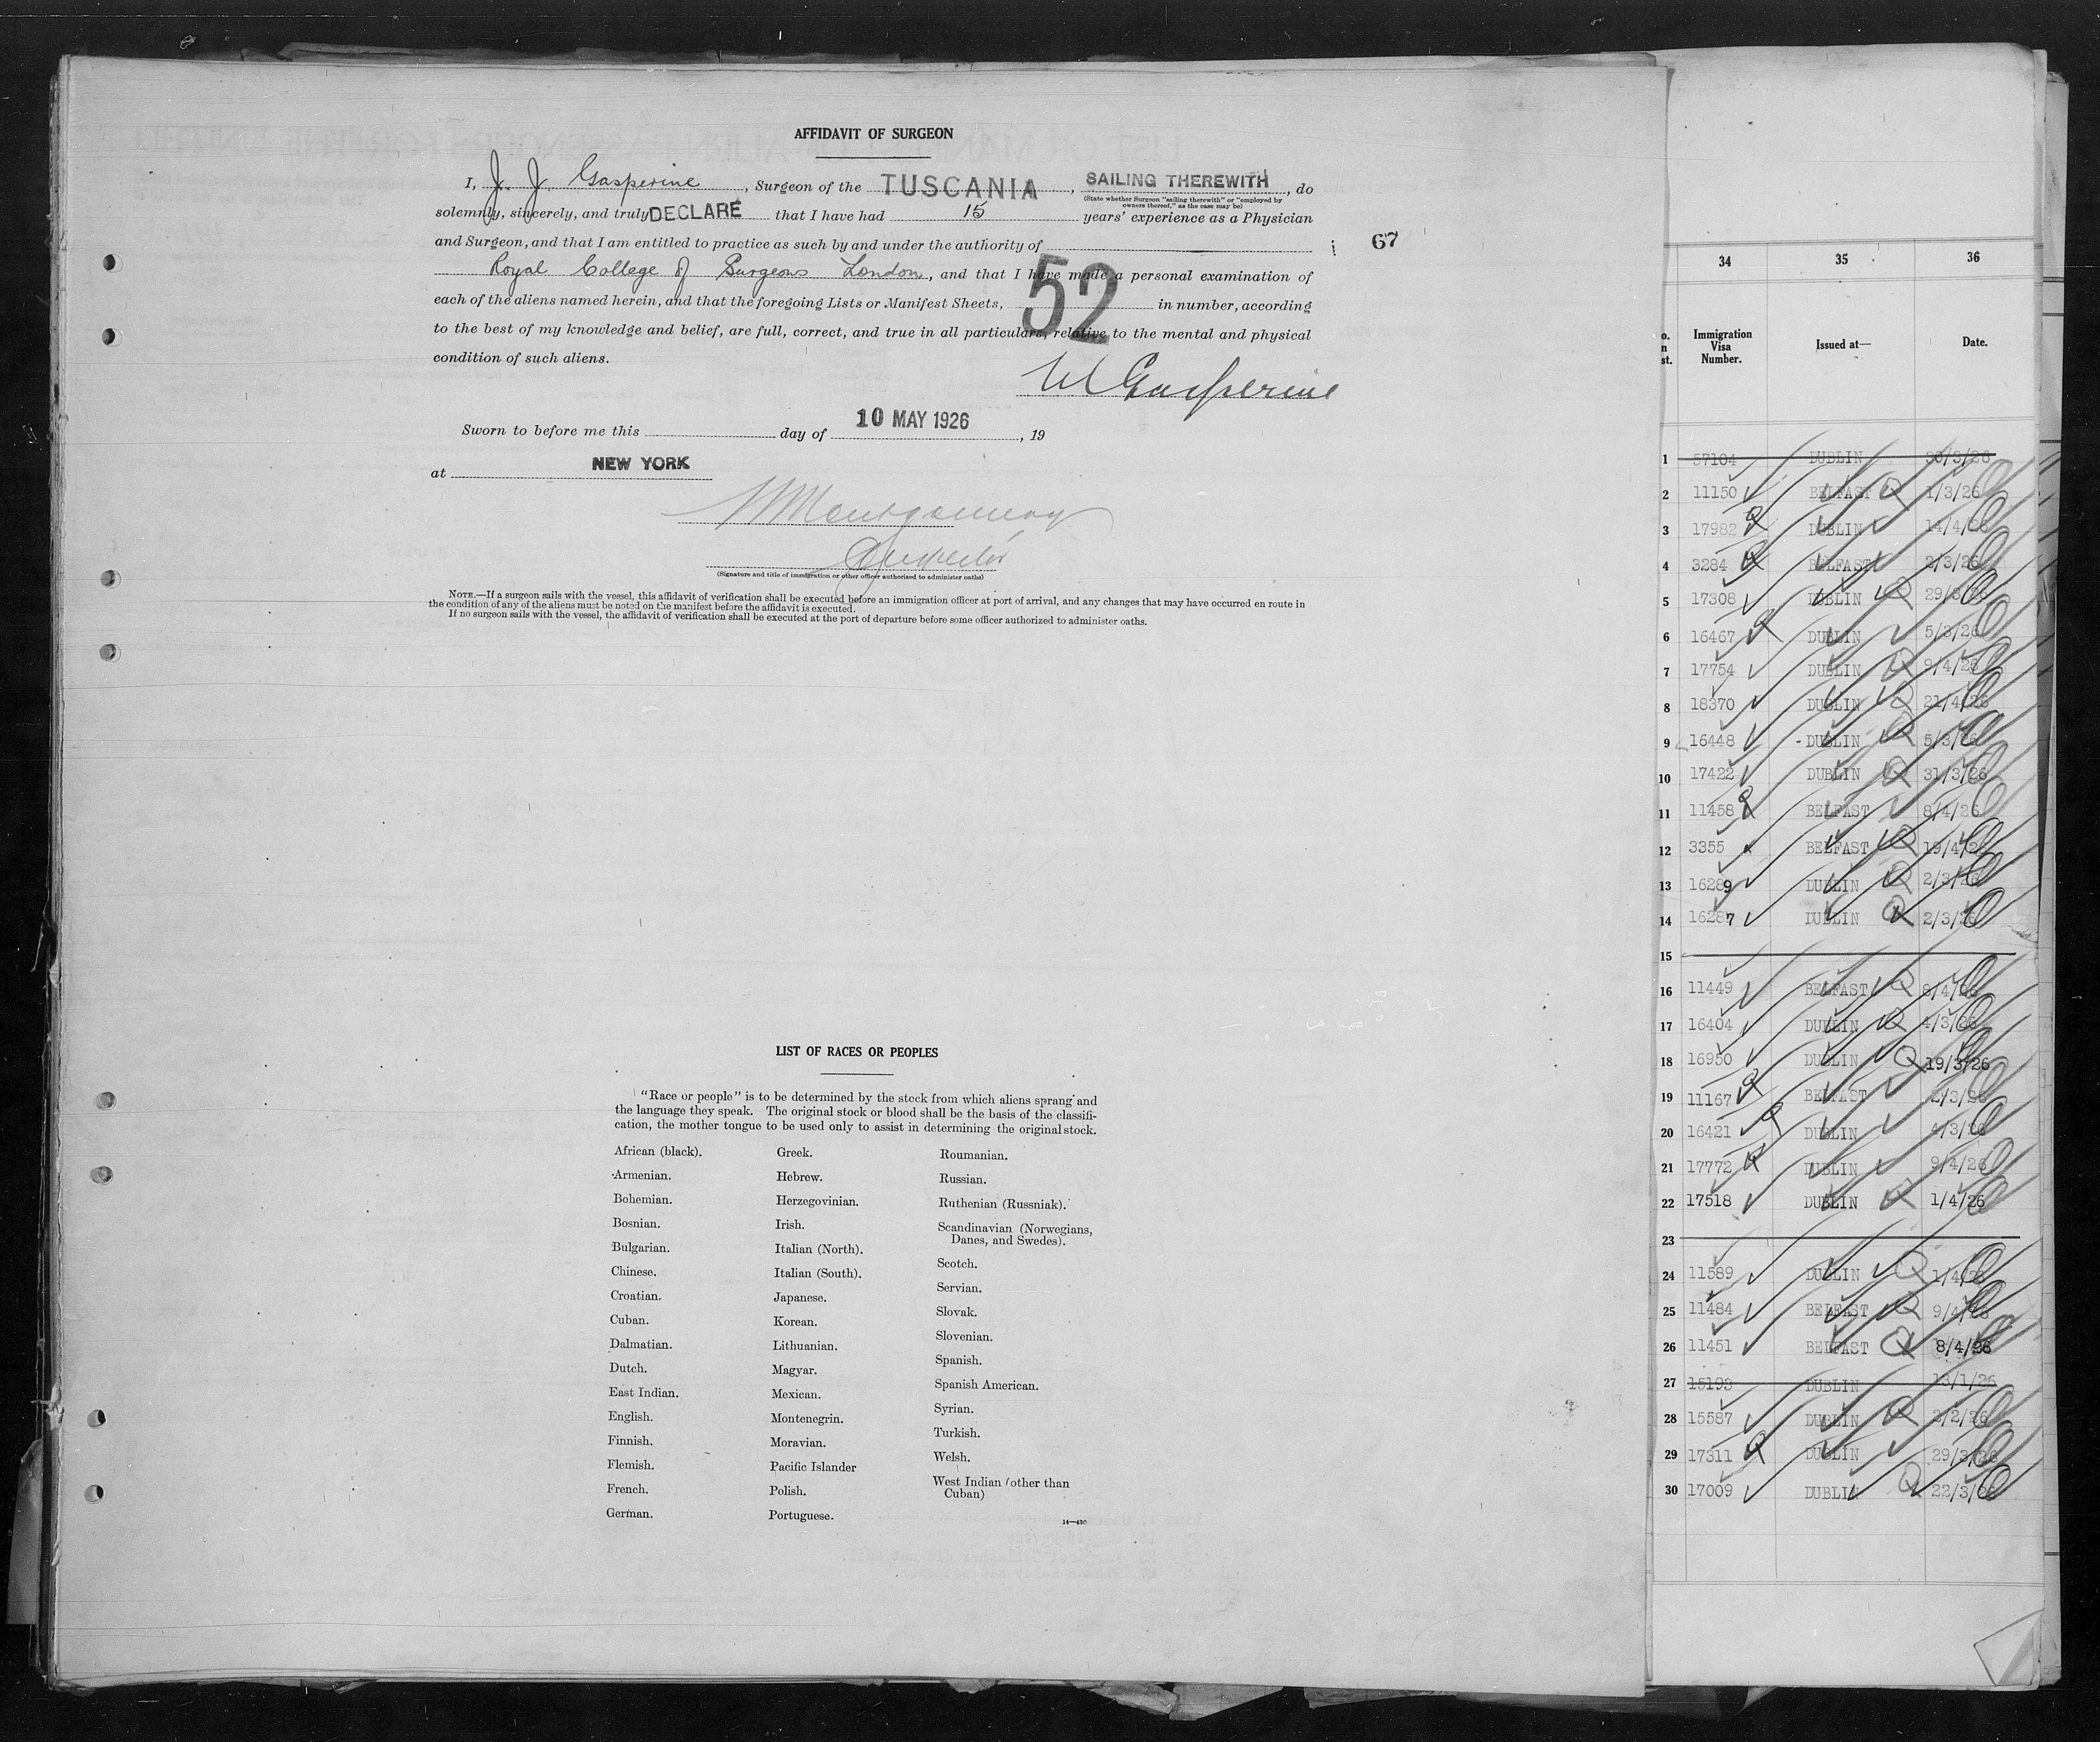 AFFIDAVIT OF SURGEON
I, J. J. Gasperine, Surgeon of the TUSCANIA, SAILING THEREWITH, do
(State whether Surgeon "sailing therewith" or "employed by
owners thereof," as the case may be)
solemnly, sincerely, and truly DECLARE that I have had 15 years' experience as a Physician
and Surgeon, and that I am entitled to practice as such by and under the authority of
67
Royal College of Surgeons London, and that I have made a personal examination of
each of the aliens named herein, and that the foregoing Lists or Manifest Sheets, 52 in number, according
to the best of my knowledge and belief, are full, correct, and true in all particulars, relative to the mental and physical
condition of such aliens.
Gasperine
Sworn to before me this day of 10 MAY 1926, 19
at NEW YORK
Montgomery
Inspector
(Signature and title of immigration or other officer authorized to administer oaths)
NOTE.—If a surgeon sails with the vessel, this affidavit of verification shall be executed before an immigration officer at port of arrival, and any changes that may have occurred en route in
the condition of any of the aliens must be noted on the manifest before the affidavit is executed.
If no surgeon sails with the vessel, the affidavit of verification shall be executed at the port of departure before some officer authorized to administer oaths.
LIST OF RACES OR PEOPLES
"Race or people" is to be determined by the stock from which aliens sprang and
the language they speak. The original stock or blood shall be the basis of the classifi-
cation, the mother tongue to be used only to assist in determining the original stock.
African (black).
Armenian.
Bohemian.
Bosnian.
Bulgarian.
Chinese.
Croatian.
Cuban.
Dalmatian.
Dutch.
East Indian.
English.
Finnish.
Flemish.
French.
German.
Greek.
Hebrew.
Herzegovinian.
Irish.
Italian (North).
Italian (South).
Japanese.
Korean.
Lithuanian.
Magyar.
Mexican.
Montenegrin.
Moravian.
Pacific Islander
Polish.
Portuguese.
Roumanian.
Russian.
Ruthenian (Russniak).
Scandinavian (Norwegians,
Danes, and Swedes).
Scotch.
Servian.
Slovak.
Slovenian.
Spanish.
Spanish American.
Syrian.
Turkish.
Welsh.
West Indian (other than
Cuban)
14—430
34 35 36
Immigration Visa Number. Issued at— Date.
1 57104 DUBLIN 30/3/26
2 11150 BELFAST 1/3/26
3 17982 DUBLIN 14/4/26
4 3284 BELFAST 2/3/26
5 17308 DUBLIN 29/3/26
6 16467 DUBLIN 5/3/26
7 17754 DUBLIN 9/4/26
8 18370 DUBLIN 21/4/26
9 16448 DUBLIN 5/3/26
10 17422 DUBLIN 31/3/26
11 11458 BELFAST 8/4/26
12 3355 BELFAST 19/4/26
13 16289 DUBLIN 2/3/26
14 16287 DUBLIN 2/3/26
15
16 11449 BELFAST 8/4/26
17 16404 DUBLIN 4/3/26
18 16950 DUBLIN 19/3/26
19 11167 BELFAST 2/3/26
20 16421 DUBLIN 4/3/26
21 17772 DUBLIN 9/4/26
22 17518 DUBLIN 1/4/26
23
24 11589 DUBLIN 1/4/26
25 11484 BELFAST 9/4/26
26 11451 BELFAST 8/4/26
27 15193 DUBLIN 13/1/26
28 15587 DUBLIN 2/2/26
29 17311 DUBLIN 29/3/26
30 17009 DUBLIN 22/3/26